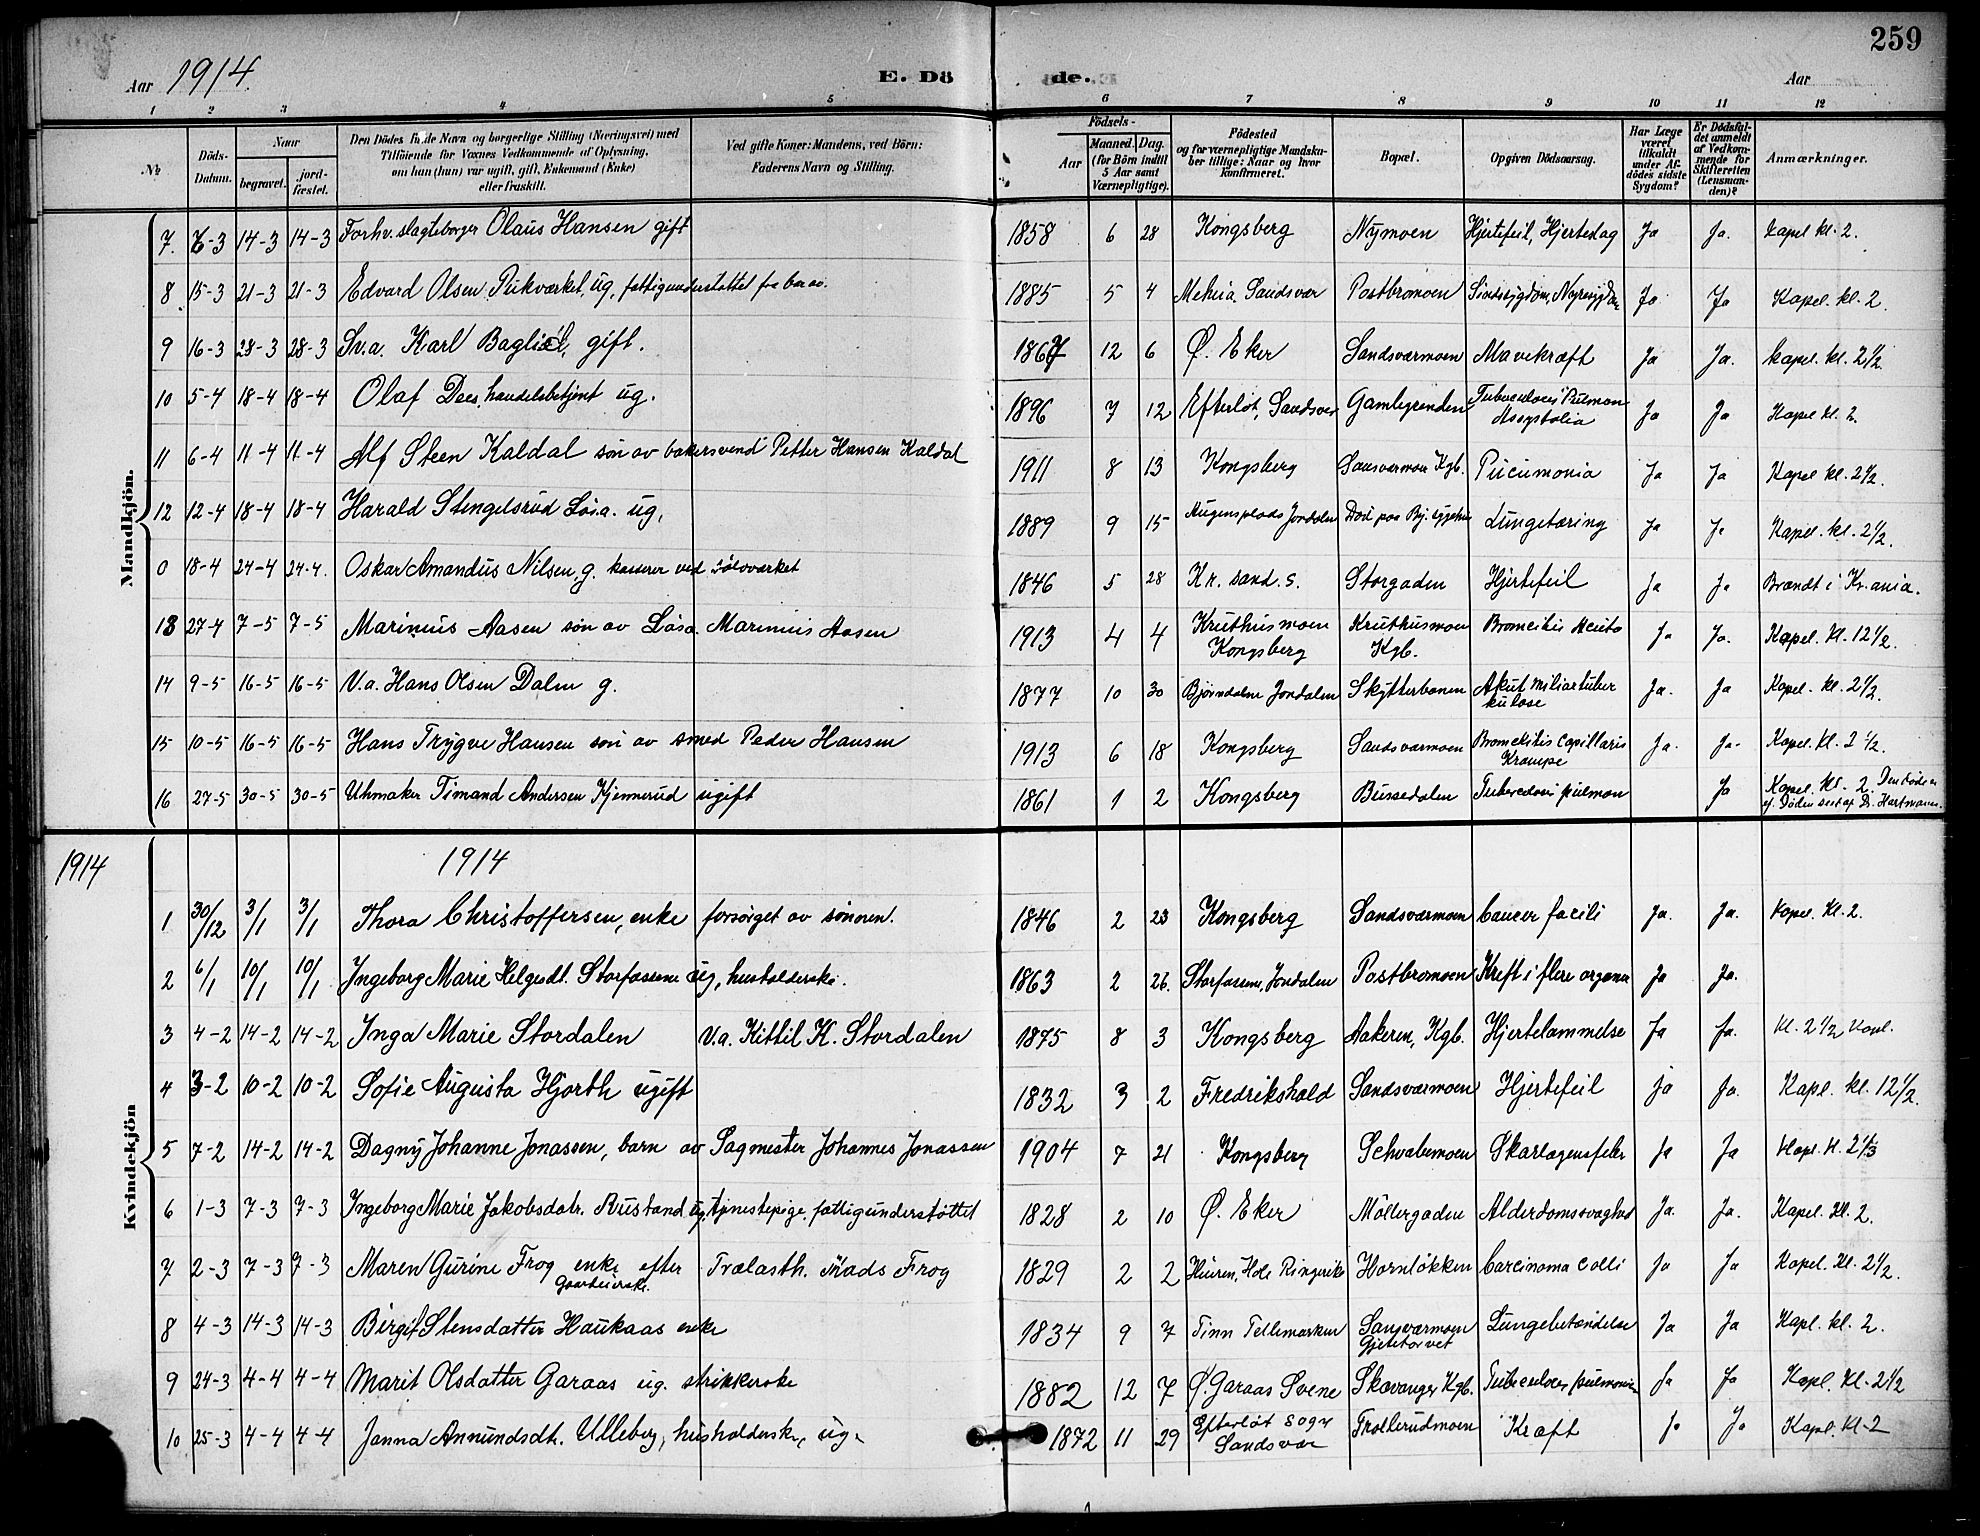 259
Aar 1914.
E. Döde.
Aar
1 2 3 4 5 6 7 8 9 10 11 12
№
Döds-Datum.
Naar
begravet.
jord-fæstet.
Den Dödes fulde Navn og borgerlige Stilling (Næringsvei) med
Tilföiende for Voxnes Vedkommende af Oplysning,
om han (hun) var ugift, gift, Enkemand (Enke)
eller fraskilt.
Ved gifte Koner: Mandens, ved Börn:
Faderens Navn og Stilling.
Födsels-
Aar
Maaned. Dag.
(for Börn indtil
5 Aar samt
Værnepligtige).
Födested
og for værnepligtige Mandska-
ber tillige: Naar og hvor
konfirmeret.
Bopæl.
Opgiven Dödsaarsag.
Har Læge
været
tilkaldt
under Af-
dödes sidste
Sygdom?
Er Dödsfal-
det anmeldt
af Vedkom-
mende for
Skifteretten
(Lensman-
den)?
Anmærkninger.
Mandkjön.
7. 7-3 14-3 14-3 Forhv. slagteborger Olaus Hansen gift 1858 6 28 Kongsberg Nymoen Hjertefeil, Hjerteslag Ja Ja. Kapel kl. 2.
8 15-3 21-3 21-3 Edvard Olsen Pukverket, ug, fattigunderstøttet 1885 5 4 Sandsvær Postbromoen Sindssygdom, Nyresygdom Ja Ja Kapel. kl. 2
9 16-3 28-3 28-3 Sv.a. Karl gift. 1867 12 6 Ø. Eker Sandsværmoen Mavekræft Ja Ja. Kapel. kl. 2½
10 5-4 18-4 18-4 Olaf Dees, handelsbetjent ug. 1896 7 12 Efterløt, Sandsvær Gamlegrenden Tuberculosis Pulmon Assystolia Ja Ja Kapel kl. 2.
11 6-4 11-4 11-4 Alf Steen Kaldal søn av bakersvend Petter Hansen Kaldal 1911 8 13 Kongsberg Sansværmoen Kgb. Pneumonia Ja Ja Kapel kl. 2½.
12 12-4 18-4 18-4 Harald Stengelsrud Løsa. ug, 1889 9 15 Jondalen Død paa By. sygehus Lungetæring Ja Ja Kapel. kl. 2½.
0 18-4 24-4 24-4. Oskar Amandus Nilsen, g. kasserer ved Sølvværket 1846 5 28 Kr. sand. s. Storgaden Hjertefeil Ja Ja Brændt i Kr.ania.
13 27-4 7-5 7-5 Marinius Aasen søn av Løsa. Marinius Aasen 1913 4 4 Kruthusmoen Kongsberg Kruthusmoen Kgb. Broncitis Acuta Ja Ja. Kapel. Kl. 12½.
14 9-5 16-5 16-5 V.a. Hans Olsen Dalen g. 1877 10 30 Bjørndalen Jondalen Skytterbanen Akut miliartuberkulose Ja. Ja Kapel. kl. 2½.
15 10-5 16-5 16-5 Hans Trygve Hansen søn av smed Peder Hansen 1913 6 18 Kongsberg Sandsværmoen Bronchitis Capillaris Krampe Ja. Ja. Kapel. Kl. 2½.
16 27-5 30-5 30-5 Uhrmaker Timand Andersen Kjennerud ugift 1861 1 2 Kongsberg Bussedalen Tuberculosis pulmon Ja Kapel. Kl. 2. Døden Dr. Hartmann.
1914
Kvindekjön
1914
1 30/12 3/1 3/1 Thora Christoffersen, enke forsørget av sønnen. 1846 2 23 Kongsberg Sandsværmoen Cancer facili Ja. Ja. Kapel. Kl. 2.
2 6/1 10/1 10/1 Ingeborg Marie Helgesdt. Storfossene ug, husholderske. 1863 2 26. Storfossen, Jondalen Postbromoen Kreft i flere organer Ja Ja.
3 4-2 14-2 14-2 Inga Marie Stordalen V.a. Kittil K. Stordalen 1875 8 3 Kongsberg Aakeren, Kgb. Hjertelammelse Ja Ja. Kl. 2½ Kapl.
4 3-2 10-2 10-2 Sofie Augusta Hjorth ugift 1832 3 2 Fredrikshald Sandsværmoen Hjertefeil ja Ja. Kapl. kl. 12½.
5 7-2 14-2 14-2 Dagny Johanne Jonassen, barn av Sagmester Johannes Jonassen 1904 7 21 Kongsberg Schvabemoen Skarlagensfeber Ja Ja Kapl. kl. 2⅓
6 1-3 7-3 7-3 Ingeborg Marie Jakobsdatr. Rustand ug, tjenestepige, fattigunderstøttet 1828 2 10 Ø. Eker Möllergaden Alderdomssvaghed Ja. Ja. Kapel. Kl. 2.
7 2-3 7-3 7-3 Maren Gurine Frog enke efter Trælasth. Mads Frog Gaardeierske. 1829 2 2 Hole Ringerike Hornløkken Carcinoma Colli Ja Ja Kapel. Kl. 2½.
8 4-3 14-3 14-3 Birgit Stensdatter Haukaas enke 1834 9 7 Tinn Tellemarken Sansværmoen Gjetetorvet Lungebetændelse Ja Ja Kapl. kl. 2.
9 24-3 4-4 4-4 Marit Olsdatter Garaas ug. strikkerske 1882 12 7 Ø. Garaas Svene Skavanger Kgb. Tuberculosis pulmonum Ja Ja Kapl. Kl. 2½
10 25-3 4-4 4-4 Janna Amundsdt. Ulleberg, husholderske, ug. 1872 11 29 Efterløt sogn Sandsvær Trollerudmoen Kræft Ja Ja Kapl. Kl-2